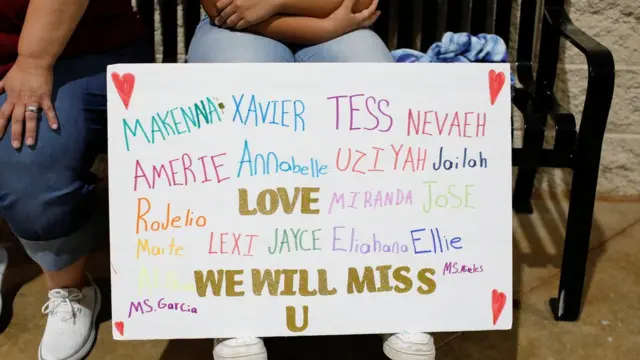 MAKENNA XAVIER TESS NEVAEH
AMERIE Annabelle UZIYAH Jailah
LOVE MIRANDA JOSE
Rojelio
Maite LEXI JAYCE Eliahana Ellie
WE WILL MISS
MS. Garcia
U